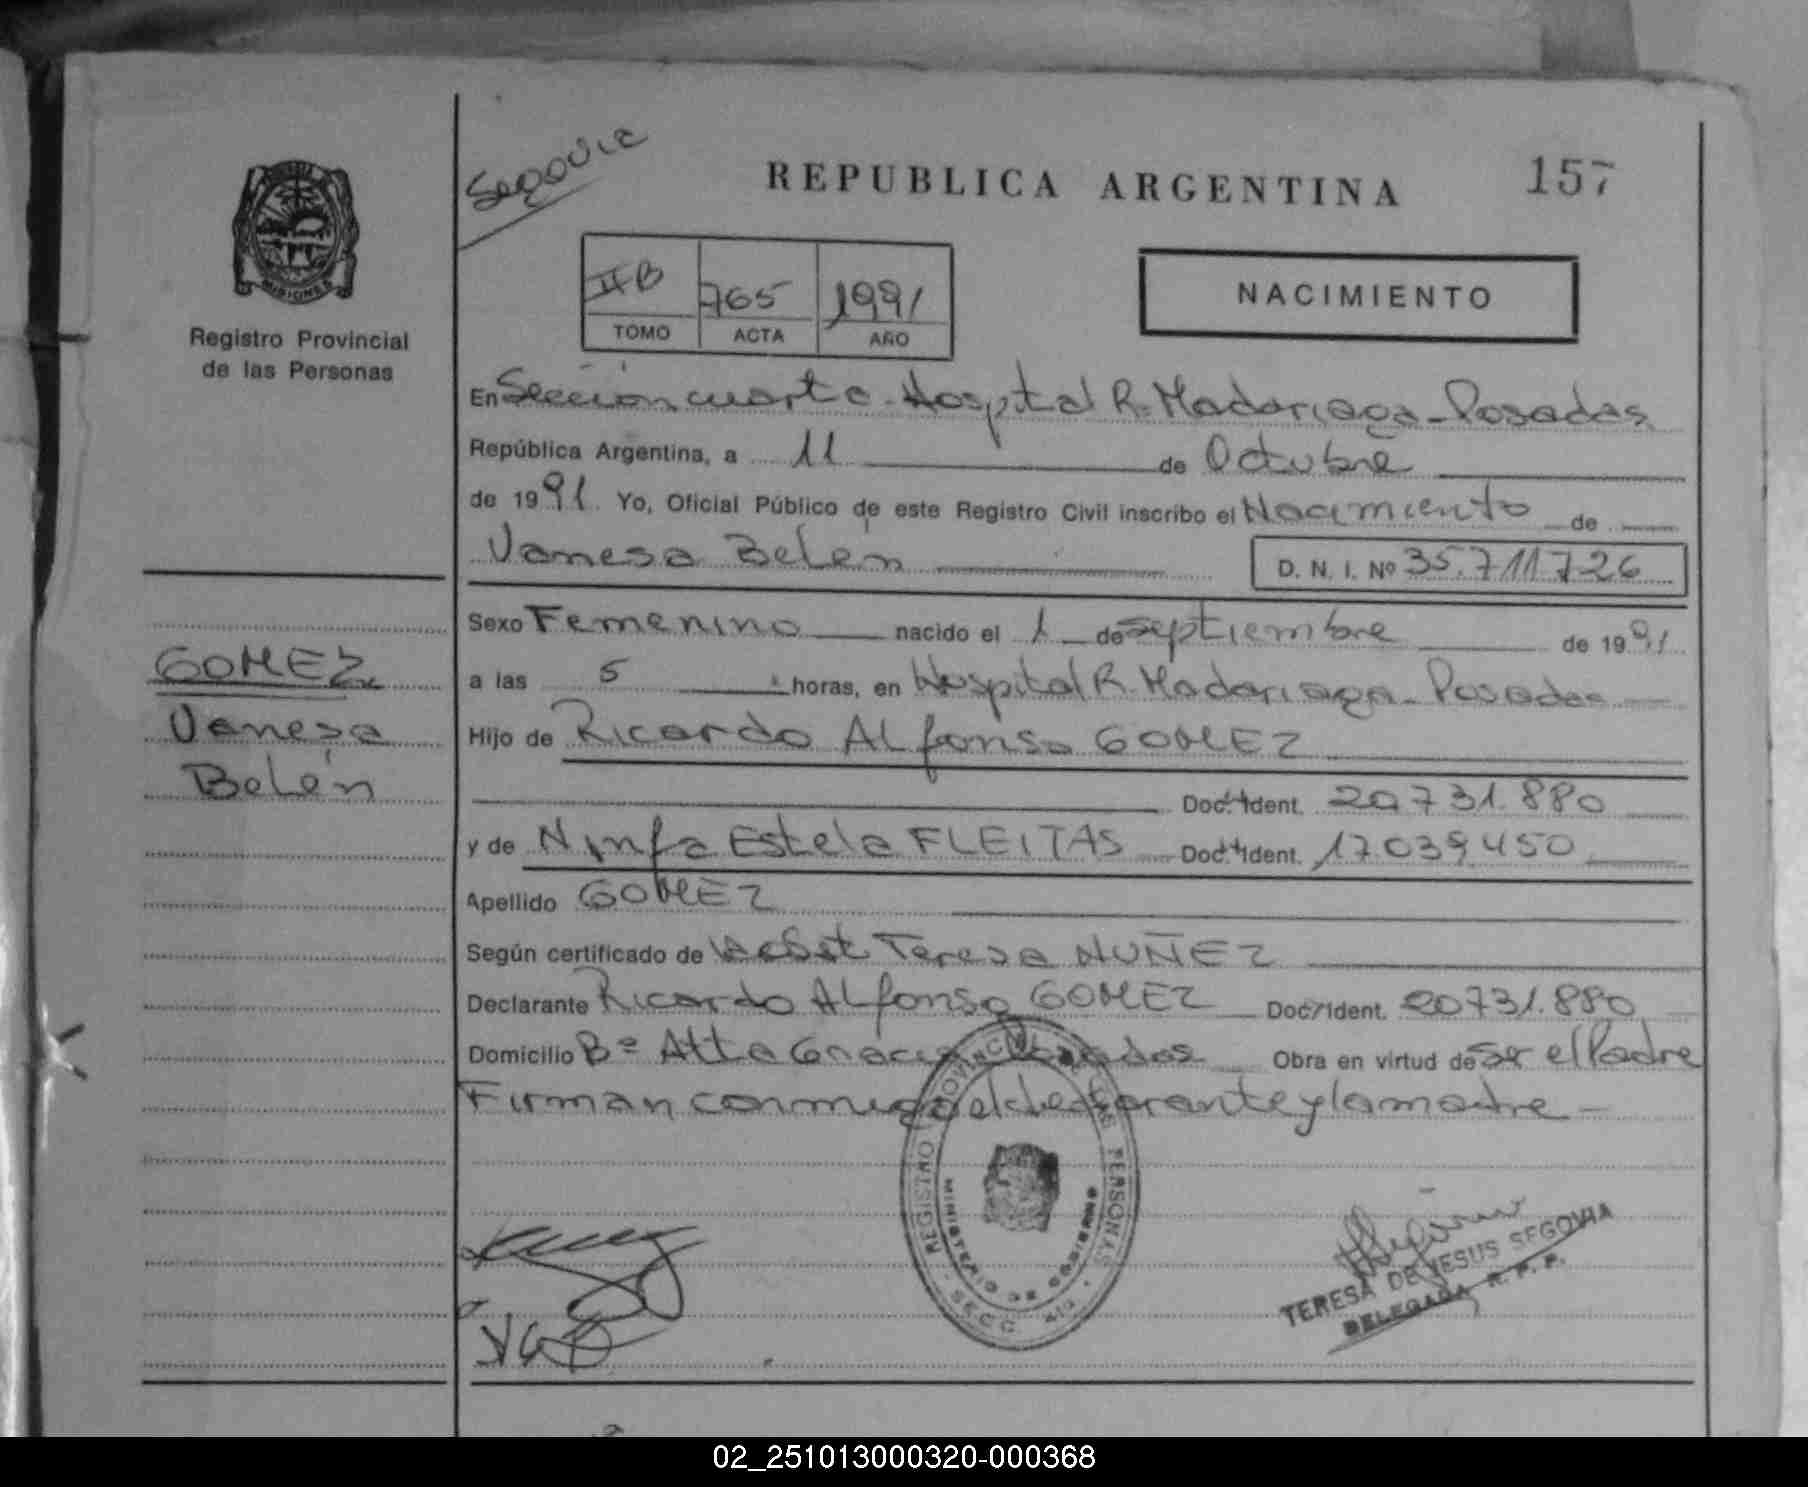 Segovia
REPUBLICA ARGENTINA
157
MISIONES
Registro Provincial
de las Personas
II B 765 1991
TOMO ACTA AÑO
NACIMIENTO
En Sección cuarta - Hospital R. Madariaga - Posadas
República Argentina, a 11 de Octubre
de 1991. Yo, Oficial Público de este Registro Civil inscribo el Nacimiento de
Vanesa Belén D. N. I. Nº 35.711.726
Sexo Femenino nacido el 1 de septiembre de 1991
a las 5 horas, en Hospital R. Madariaga - Posadas
Hijo de Ricardo Alfonso GOMEZ
Doc. Ident. 20.731.880
y de Ninfa Estela FLEITAS Doc. Ident. 17.039.450
Apellido GOMEZ
Según certificado de Teresa NUÑEZ
Declarante Ricardo Alfonso GOMEZ Doc. Ident. 20.731.880
Domicilio Bº Alta Gracia Posadas Obra en virtud de ser el Padre
Firman conmigo el declarante y la madre -
GOMEZ
Vanesa
Belén
REGISTRO PROVINCIAL DE LAS PERSONAS
MINISTERIO DE GOBIERNO
SECC. 4ta
TERESA DE JESUS SEGOVIA
DELEGADA R. P. P.
02_251013000320-000368